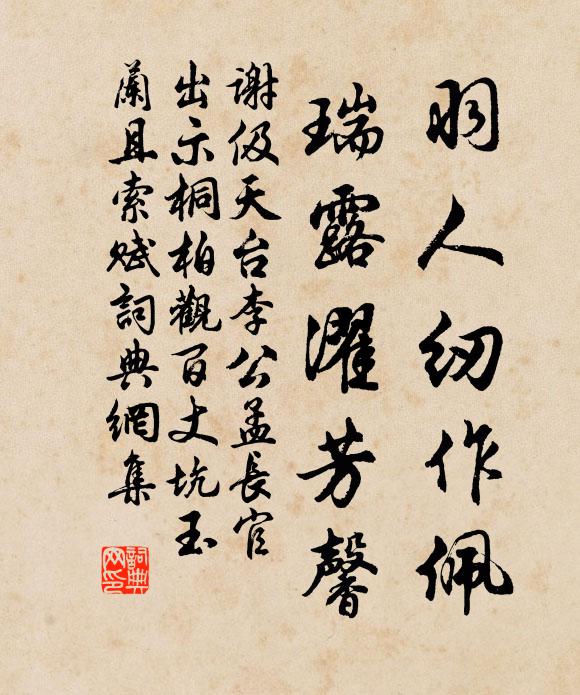 羽人纫作佩
瑞露濯芳馨
谢伋天台李公孟長官
出示桐柏觀百丈坑玉
蘭且索赋詞典網集
詞典网印